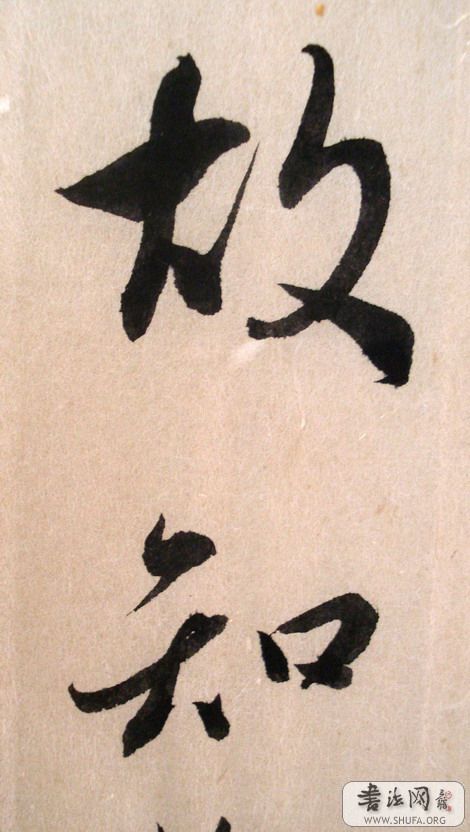 故知
书法网
WWW.SHUFA.ORG